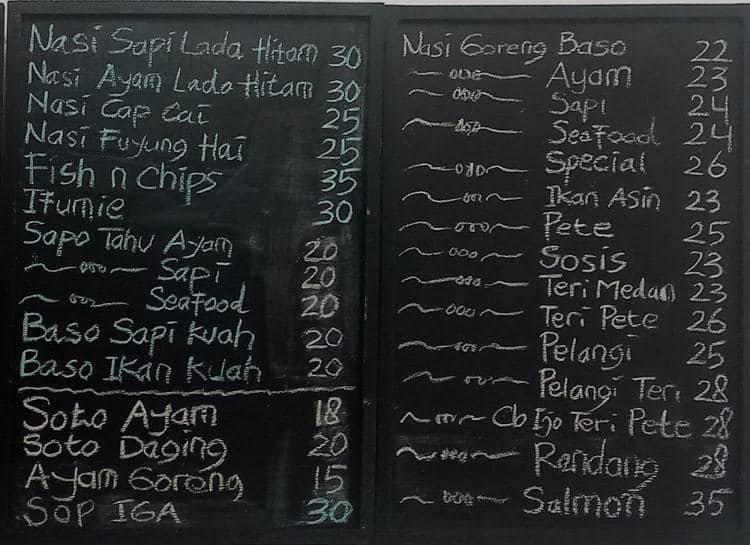 Nasi Sapi Lada Hitam 30
Nasi Ayam Lada Hitam 30
Nasi Cap Cai 25
Nasi Fuyung Hai 25
Fish n Chips 35
Ifumie 30
Sapo Tahu Ayam 20
~ ooo ~ Sapi 20
~ ooo ~ Seafood 20
Baso Sapi Kuah 20
Baso Ikan Kuah 20
Soto Ayam 18
Soto Daging 20
Ayam Goreng 15
Sop IGA 30
Nasi Goreng Baso 22
~ ooo ~ Ayam 23
~ ooo ~ Sapi 24
~ ooo ~ Seafood 24
~ ooo ~ Special 26
~ ooo ~ Ikan Asin 23
~ ooo ~ Pete 25
~ ooo ~ Sosis 23
~ ooo ~ Teri Medan 23
~ ooo ~ Teri Pete 26
~ ooo ~ Pelangi 25
~ ooo ~ Pelangi Teri 28
~ ooo ~ Cb Ijo Teri Pete 28
~ ooo ~ Randang 28
~ ooo ~ Salmon 35